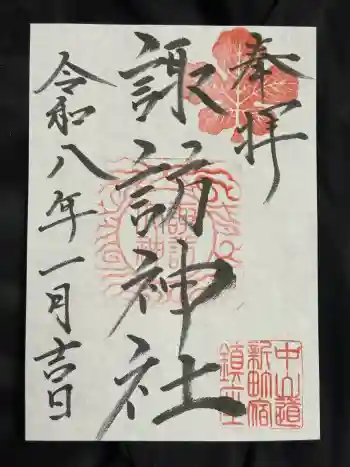 奉拝
諏訪神社
令和八年一月吉日
中山道
新町宿
鎮座